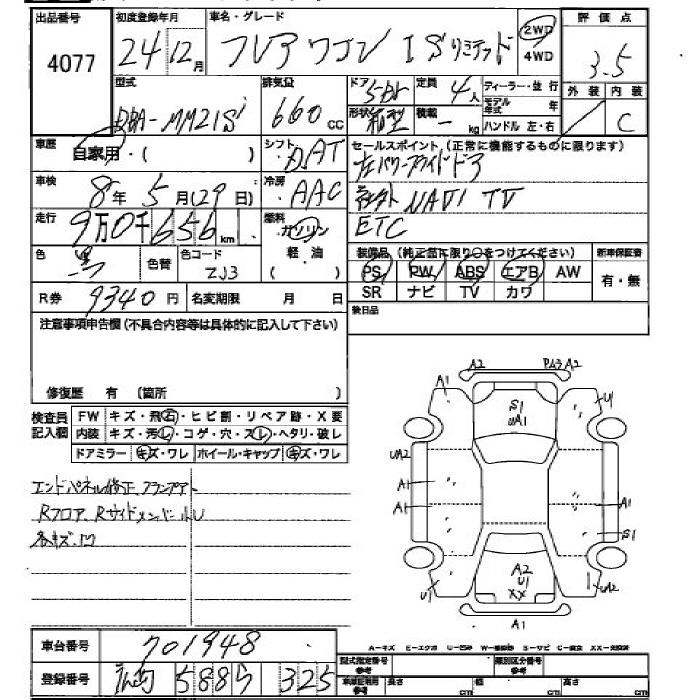 出品番号 初度登録年月 車名・グレード 2WD 評価点
4077 24年12月 フレアワゴン ISリミテッド 4WD 3.5
型式 排気量 ドア 定員 ディーラー・並行 外装 内装
DBA-MM21S 660cc 5Dr 4人 モデル年式 年 C
形状 箱型 積載 - kg ハンドル 左・右
車歴 自家用・( ) シフト DAT セールスポイント(正常に機能するものに限ります)
左パワースライドドア
車検 8年5月(29日) 冷房 AAC 社外NAVI TV
走行 9万0千656km 燃料 ガソリン ETC
軽油
( )
色 黒 色替 色コード ZJ3 装備品(純正品に限り○をつけてください) 新車保証書
PS PW ABS エアB AW 有・無
R券 9340円 名変期限 月 日 SR ナビ TV カワ
注意事項申告欄(不具合内容等は具体的に記入して下さい) 後日品
修復歴 有 〔箇所 〕
検査員記入欄 FW キズ・飛石・ヒビ割・リペア跡・X要
内装 キズ・汚レ・コゲ・穴・スレ・ヘタリ・破レ
ドアミラー キズ・ワレ ホイール・キャップ キズ・ワレ
エンドパネル修正、
Rフロア、Rサイドメンバー
各キズ、凹
A2 PA3 A2
A1 U1
S1
UA1
UA2
A1 A1
A1
S1
A2
U1
XX
U1 UA2
A1
車台番号 701948
登録番号 5885 325
A-キズ E-エクボ U-凹み W-補修跡 S-サビ C-腐食 XX-交換済
型式指定番号 参考 類別区分番号 参考
車庫証明用 参考 長さ cm 幅 cm 高さ cm